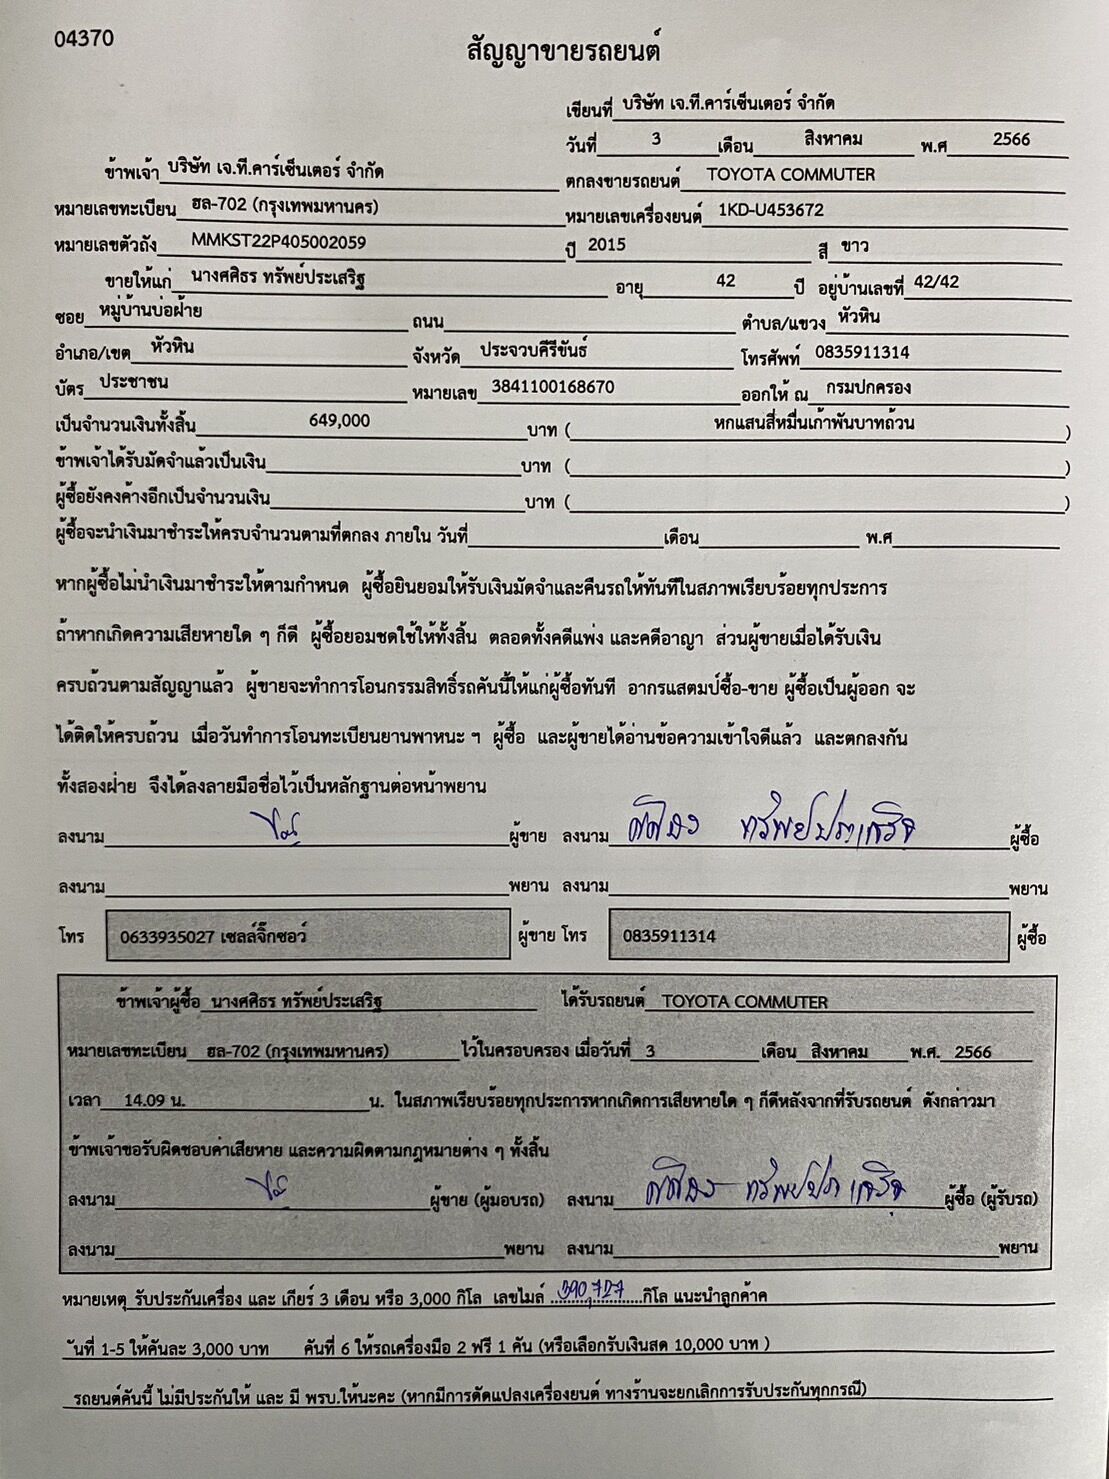 04370
สัญญาขายรถยนต์
เขียนที่ บริษัท เจ.ที.คาร์เซ็นเตอร์ จำกัด
วันที่ 3 เดือน สิงหาคม พ.ศ 2566
ข้าพเจ้า บริษัท เจ.ที.คาร์เซ็นเตอร์ จำกัด ตกลงขายรถยนต์ TOYOTA COMMUTER
หมายเลขทะเบียน ฮล-702 (กรุงเทพมหานคร) หมายเลขเครื่องยนต์ 1KD-U453672
หมายเลขตัวถัง MMKST22P405002059 ปี 2015 สี ขาว
ขายให้แก่ นางศศิธร ทรัพย์ประเสริฐ อายุ 42 ปี อยู่บ้านเลขที่ 42/42
ซอย หมู่บ้านบ่อฝ้าย ถนน ตำบล/แขวง หัวหิน
อำเภอ/เขต หัวหิน จังหวัด ประจวบคีรีขันธ์ โทรศัพท์ 0835911314
บัตร ประชาชน หมายเลข 3841100168670 ออกให้ ณ กรมปกครอง
เป็นจำนวนเงินทั้งสิ้น 649,000 บาท ( หกแสนสี่หมื่นเก้าพันบาทถ้วน )
ข้าพเจ้าได้รับมัดจำแล้วเป็นเงิน บาท ( )
ผู้ซื้อยังคงค้างอีกเป็นจำนวนเงิน บาท ( )
ผู้ซื้อจะนำเงินมาชำระให้ครบจำนวนตามที่ตกลง ภายใน วันที่ เดือน พ.ศ
หากผู้ซื้อไม่นำเงินมาชำระให้ตามกำหนด ผู้ซื้อยินยอมให้รับเงินมัดจำและคืนรถให้ทันทีในสภาพเรียบร้อยทุกประการ
ถ้าหากเกิดความเสียหายใด ๆ ก็ดี ผู้ซื้อยอมชดใช้ให้ทั้งสิ้น ตลอดทั้งคดีแพ่ง และคดีอาญา ส่วนผู้ขายเมื่อได้รับเงิน
ครบถ้วนตามสัญญาแล้ว ผู้ขายจะทำการโอนกรรมสิทธิ์รถคันนี้ให้แก่ผู้ซื้อทันที อากรแสตมป์ซื้อ-ขาย ผู้ซื้อเป็นผู้ออก จะ
ได้ติดให้ครบถ้วน เมื่อวันทำการโอนทะเบียนยานพาหนะ ฯ ผู้ซื้อ และผู้ขายได้อ่านข้อความเข้าใจดีแล้ว และตกลงกัน
ทั้งสองฝ่าย จึงได้ลงลายมือชื่อไว้เป็นหลักฐานต่อหน้าพยาน
ลงนาม ผู้ขาย ลงนาม ศศิธร ทรัพย์ประเสริฐ ผู้ซื้อ
ลงนาม พยาน ลงนาม พยาน
โทร 0633935027 เซลล์จิ๊กซอว์ ผู้ขาย โทร 0835911314 ผู้ซื้อ
ข้าพเจ้าผู้ซื้อ นางศศิธร ทรัพย์ประเสริฐ ได้รับรถยนต์ TOYOTA COMMUTER
หมายเลขทะเบียน ฮล-702 (กรุงเทพมหานคร) ไว้ในครอบครอง เมื่อวันที่ 3 เดือน สิงหาคม พ.ศ. 2566
เวลา 14.09 น. น. ในสภาพเรียบร้อยทุกประการหากเกิดการเสียหายใด ๆ ก็ดีหลังจากที่รับรถยนต์ ดังกล่าวมา
ข้าพเจ้าขอรับผิดชอบค่าเสียหาย และความผิดตามกฎหมายต่าง ๆ ทั้งสิ้น
ลงนาม ผู้ขาย (ผู้มอบรถ) ลงนาม ศศิธร ทรัพย์ประเสริฐ ผู้ซื้อ (ผู้รับรถ)
ลงนาม พยาน ลงนาม พยาน
หมายเหตุ รับประกันเครื่อง และ เกียร์ 3 เดือน หรือ 3,000 กิโล เลขไมล์ 390,727 กิโล แนะนำลูกค้าค
ันที่ 1-5 ให้คันละ 3,000 บาท คันที่ 6 ให้รถเครื่องมือ 2 ฟรี 1 คัน (หรือเลือกรับเงินสด 10,000 บาท )
รถยนต์คันนี้ ไม่มีประกันให้ และ มี พรบ.ให้นะคะ (หากมีการดัดแปลงเครื่องยนต์ ทางร้านจะยกเลิกการรับประกันทุกกรณี)